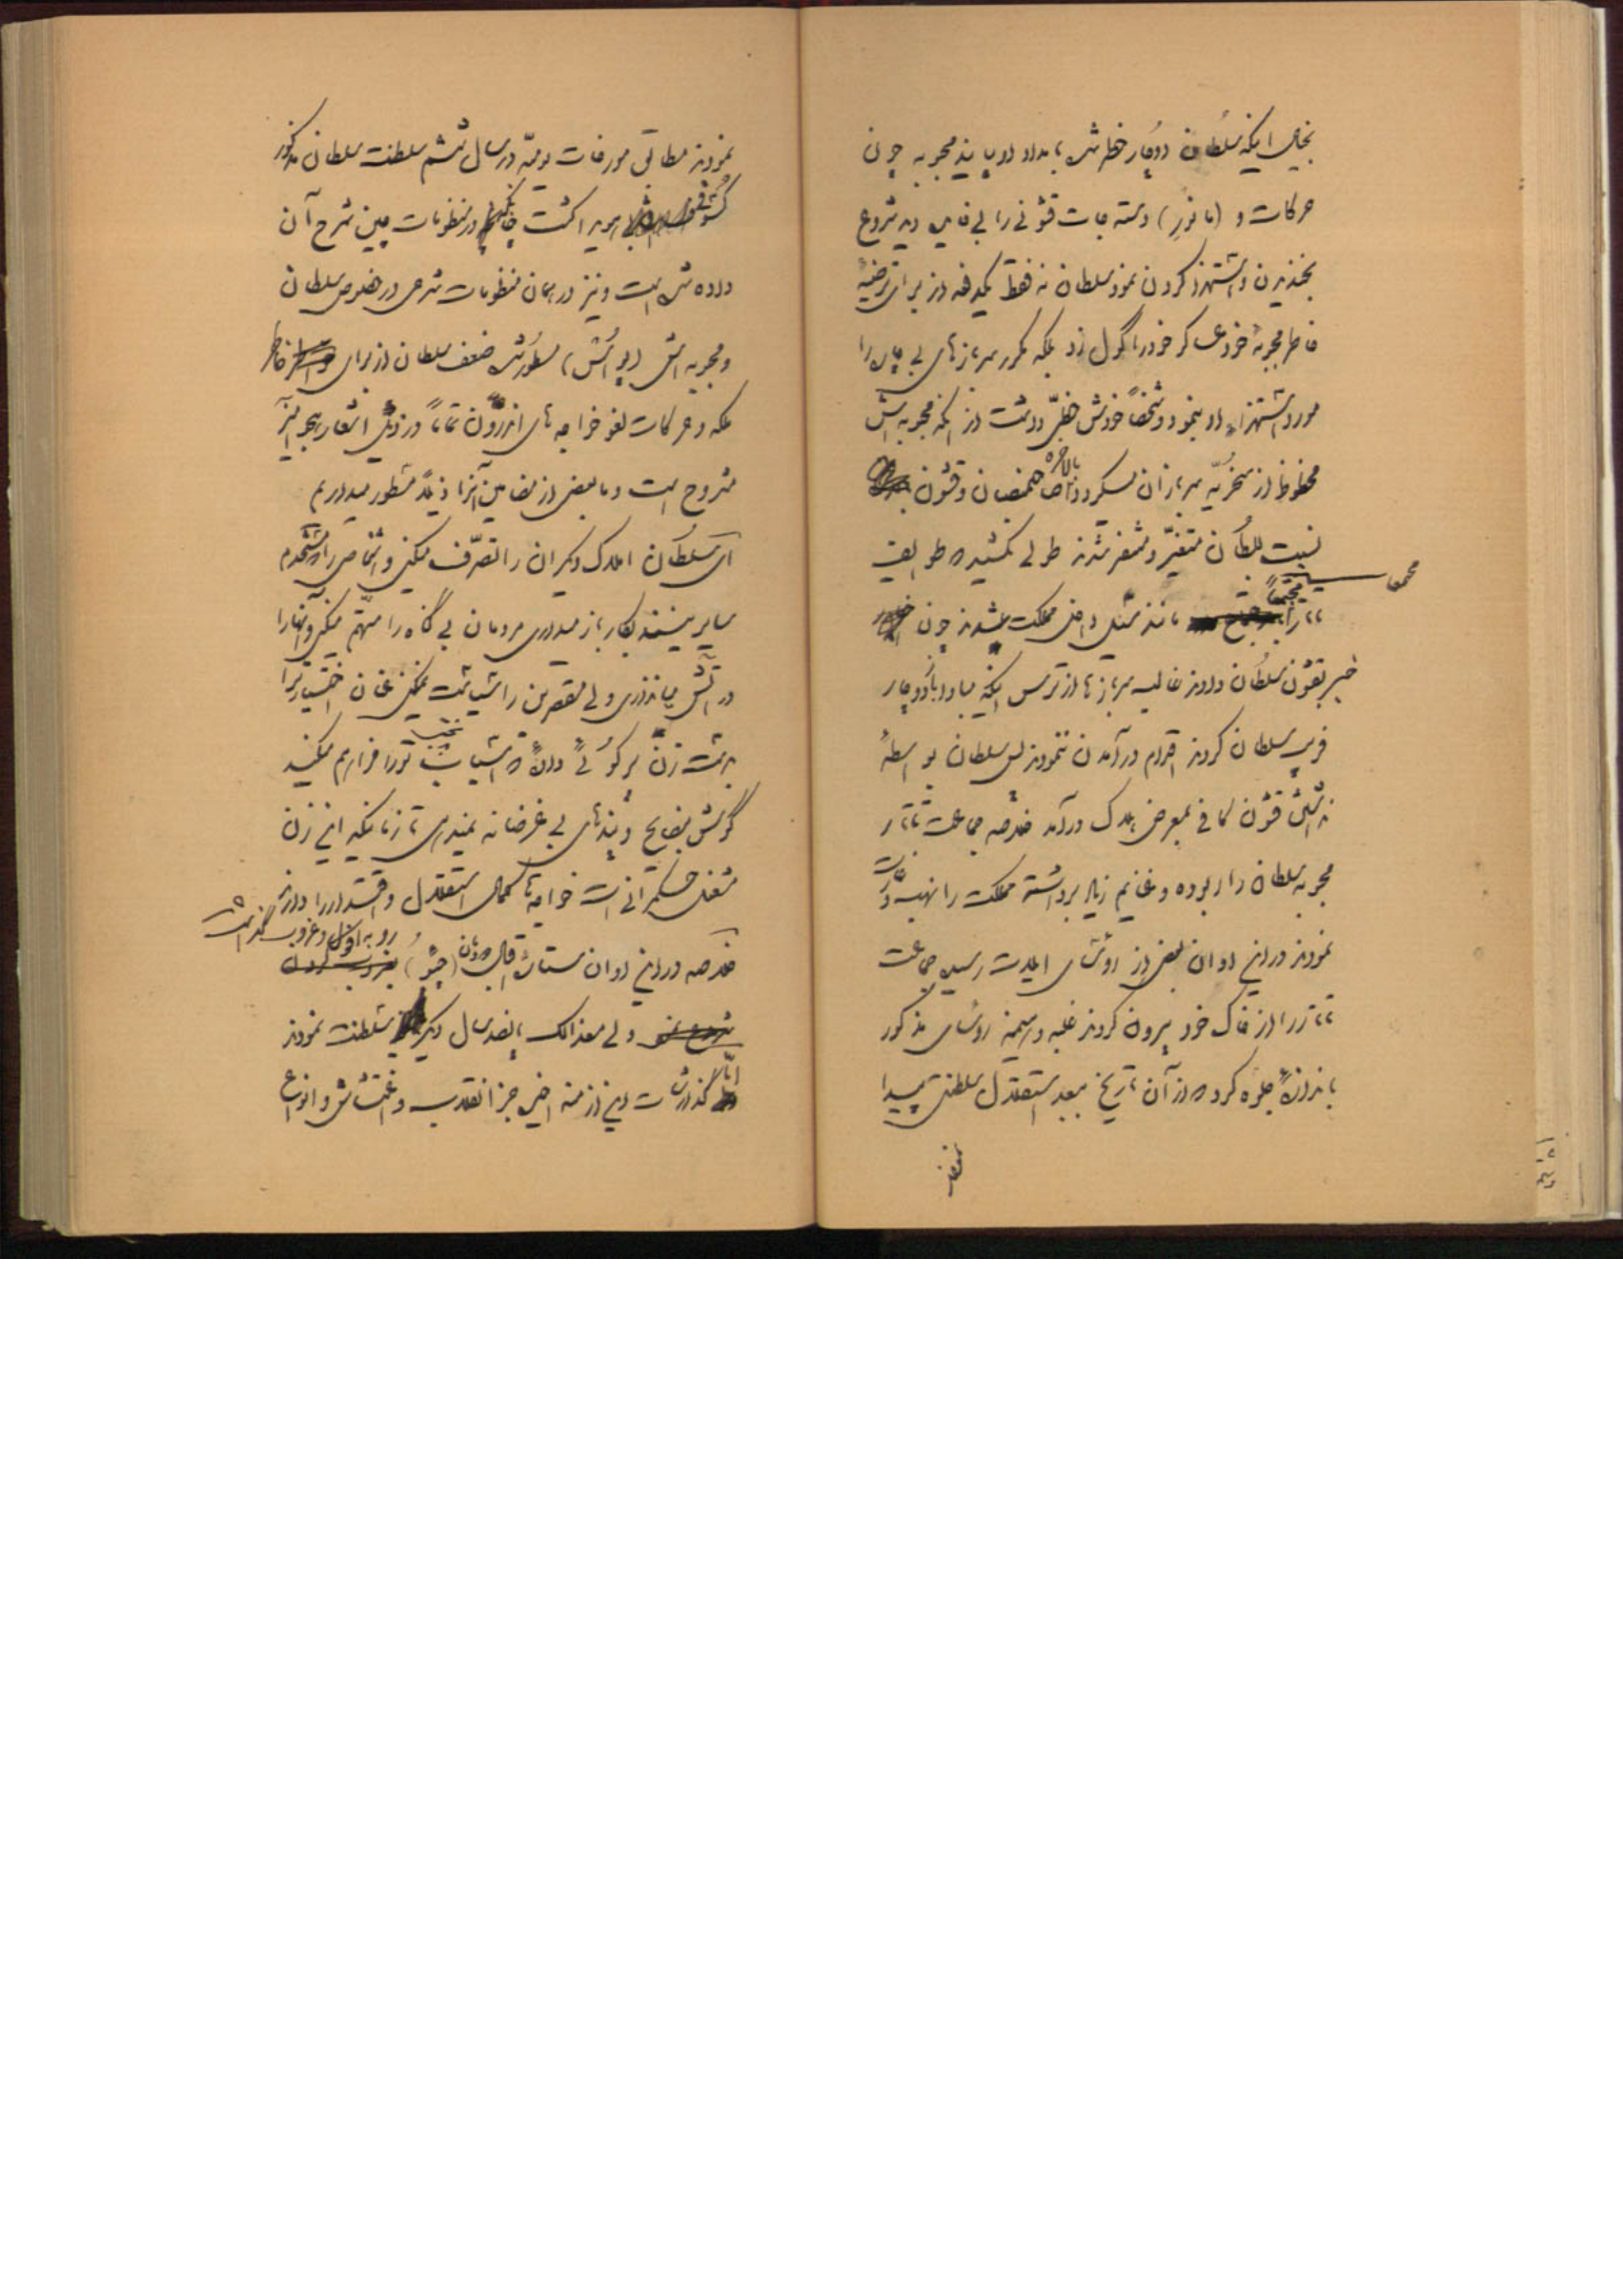 بخیال اینکه سلطان دوچار خطر شده بامداد او بیایند محبوبه چون
حرکات و (مانور) دسته جات قشونی را بی فایده دید شروع
بخندیدن و استهزا کردن نمود سلطان نه فقط یکدفعه از برای ترضیهٔ
خاطر محبوبهٔ خود عسکر خود را گول زد بلکه مکرر سربازهای بیچاره را
مورد استهزاء او نمود و شخصاً خودش حظی داشت از اینکه محبوبه اش
محظوظ از سخریّه سربازان میگردد بالاخره صاحبمنصبان و قشون
نسبت بسلطان متغیّر و متنفر شدند طولی نکشید که طوایف
تاتار مجتمعاً مانند سیل داخل مملکت شدند چون
خبر بقشون سلطان دادند غالب سربازها از ترس اینکه مبادا باز دوچار
فریب سلطان گردند اقدام در آمدن ننمودند پس سلطان بواسطهٔ
نداشتن قشون کافی بمعرض هلاک درآمد خلاصه جماعت تاتار
محبوبه سلطان را ربوده و غنایم زیاد برداشته مملکت را نهب و غارت
نمودند در این اوان بعضی از رؤسای ایلات رسیده جماعت
تاتار را از خاک خود بیرون کردند غلبه و هیمنه رؤسای مذکور
باندازهٔ جلوه کرد که از آن تاریخ ببعد استقلال سلطنتی پیدا
نمودند
نمودند مطابق مورخات یومیّه در سال ششم سلطنت سلطان مذکور
کسوف پدیدار گشت چنانکه در منظومات چین شرح آن
داده شده است و نیز در همان منظومات شرحی در خصوص سلطان
و محبوبه اش مسطور شده ضعف سلطان از برای خاطر
ملکه و حرکات لغو خواجه های اندرون تماماً در ذیل اشعار هجو آمیز
مشروح است و ما بعضی از مضامین آنرا ذیلاً مسطور میداریم
ای سلطان املاک دیگران را تصرّف میکنی و اشخاصی را که مستخدم
سایرین هستند بکار باز میداری مردمان بی گناه را متهم میکنی و آنها را
در آتش می اندازی ولی مقصرین را سیاست نمیکنی عنان اختیار ترا
بدست زن پرگوئی داده که اسباب تورا فراهم میکند
گوش بنصایح و پندهای بی غرضانه نمیدهی تا زمانیکه این زن
مشغول حکمرانی است خواجه ها کمال استقلال و اقتدار را دارند
خلاصه در این اوان ستاره اقبال خاندان (چئو) رو به افول و غروب گذاشت
ولی معذالک پانصد سال دیگر سلطنت نمودند
امّا گذارشات این ازمنه اخیر جز انقلاب و اغتشاش و انواع